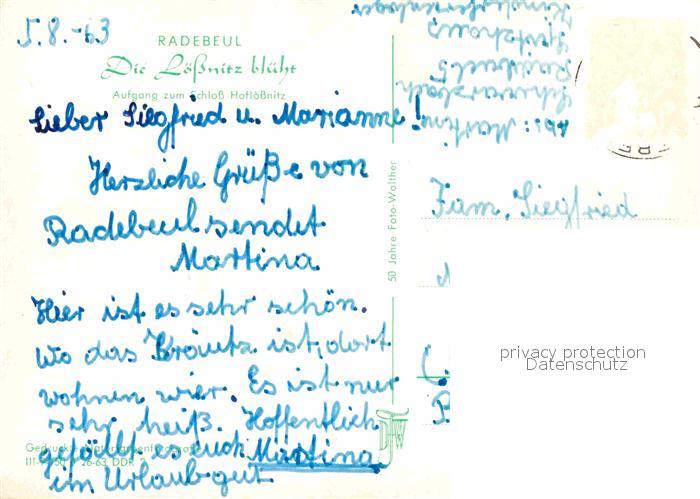 5.8.-63
RADEBEUL
Die Lößnitz blüht
Aufgang zum Schloß Hoflößnitz
Lieber Siegfried u. Marianne!
Herzliche Grüße von
Radebeul sendet
Martina
Hier ist es sehr schön.
Wo das Kräutz ist, dort
wohnen wier. Es ist nur
sehr heiß. Hoffentlich
gefällt es euch
im Urlaub gut
Martina
50 Jahre Foto-Walther
Abs: Martina
Schwarzbach
Radebeul 5
Spitzhaus
Fam. Siegfried
privacy protection
Datenschutz